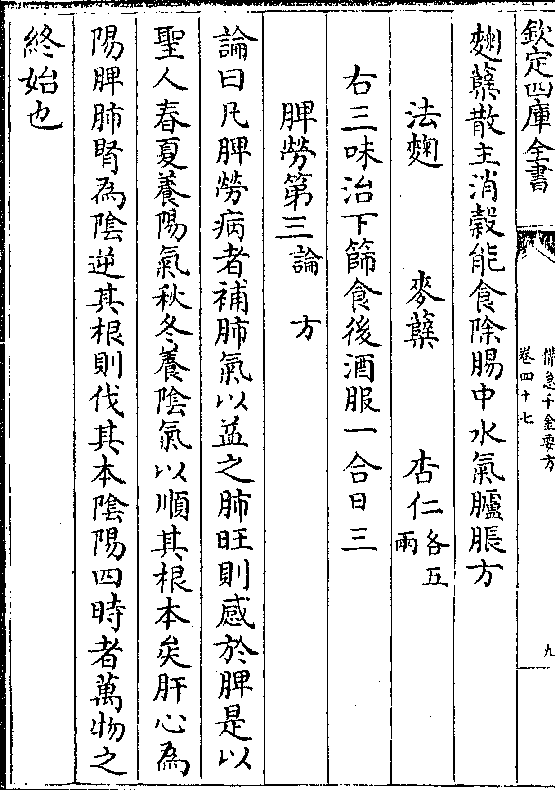 欽定四庫全書
備急千金要方
卷四十七
九
麴蘖散主消穀能食除腸中水氣臚脹方
法麴 麥蘖 杏仁各五兩
右三味治下篩食後酒服一合日三
脾勞第三論 方
論曰凡脾勞病者補肺氣以益之肺旺則感於脾是以
聖人春夏養陽氣秋冬養陰氣以順其根本矣肝心為
陽脾肺腎為陰逆其根則伐其本陰陽四時者萬物之
終始也